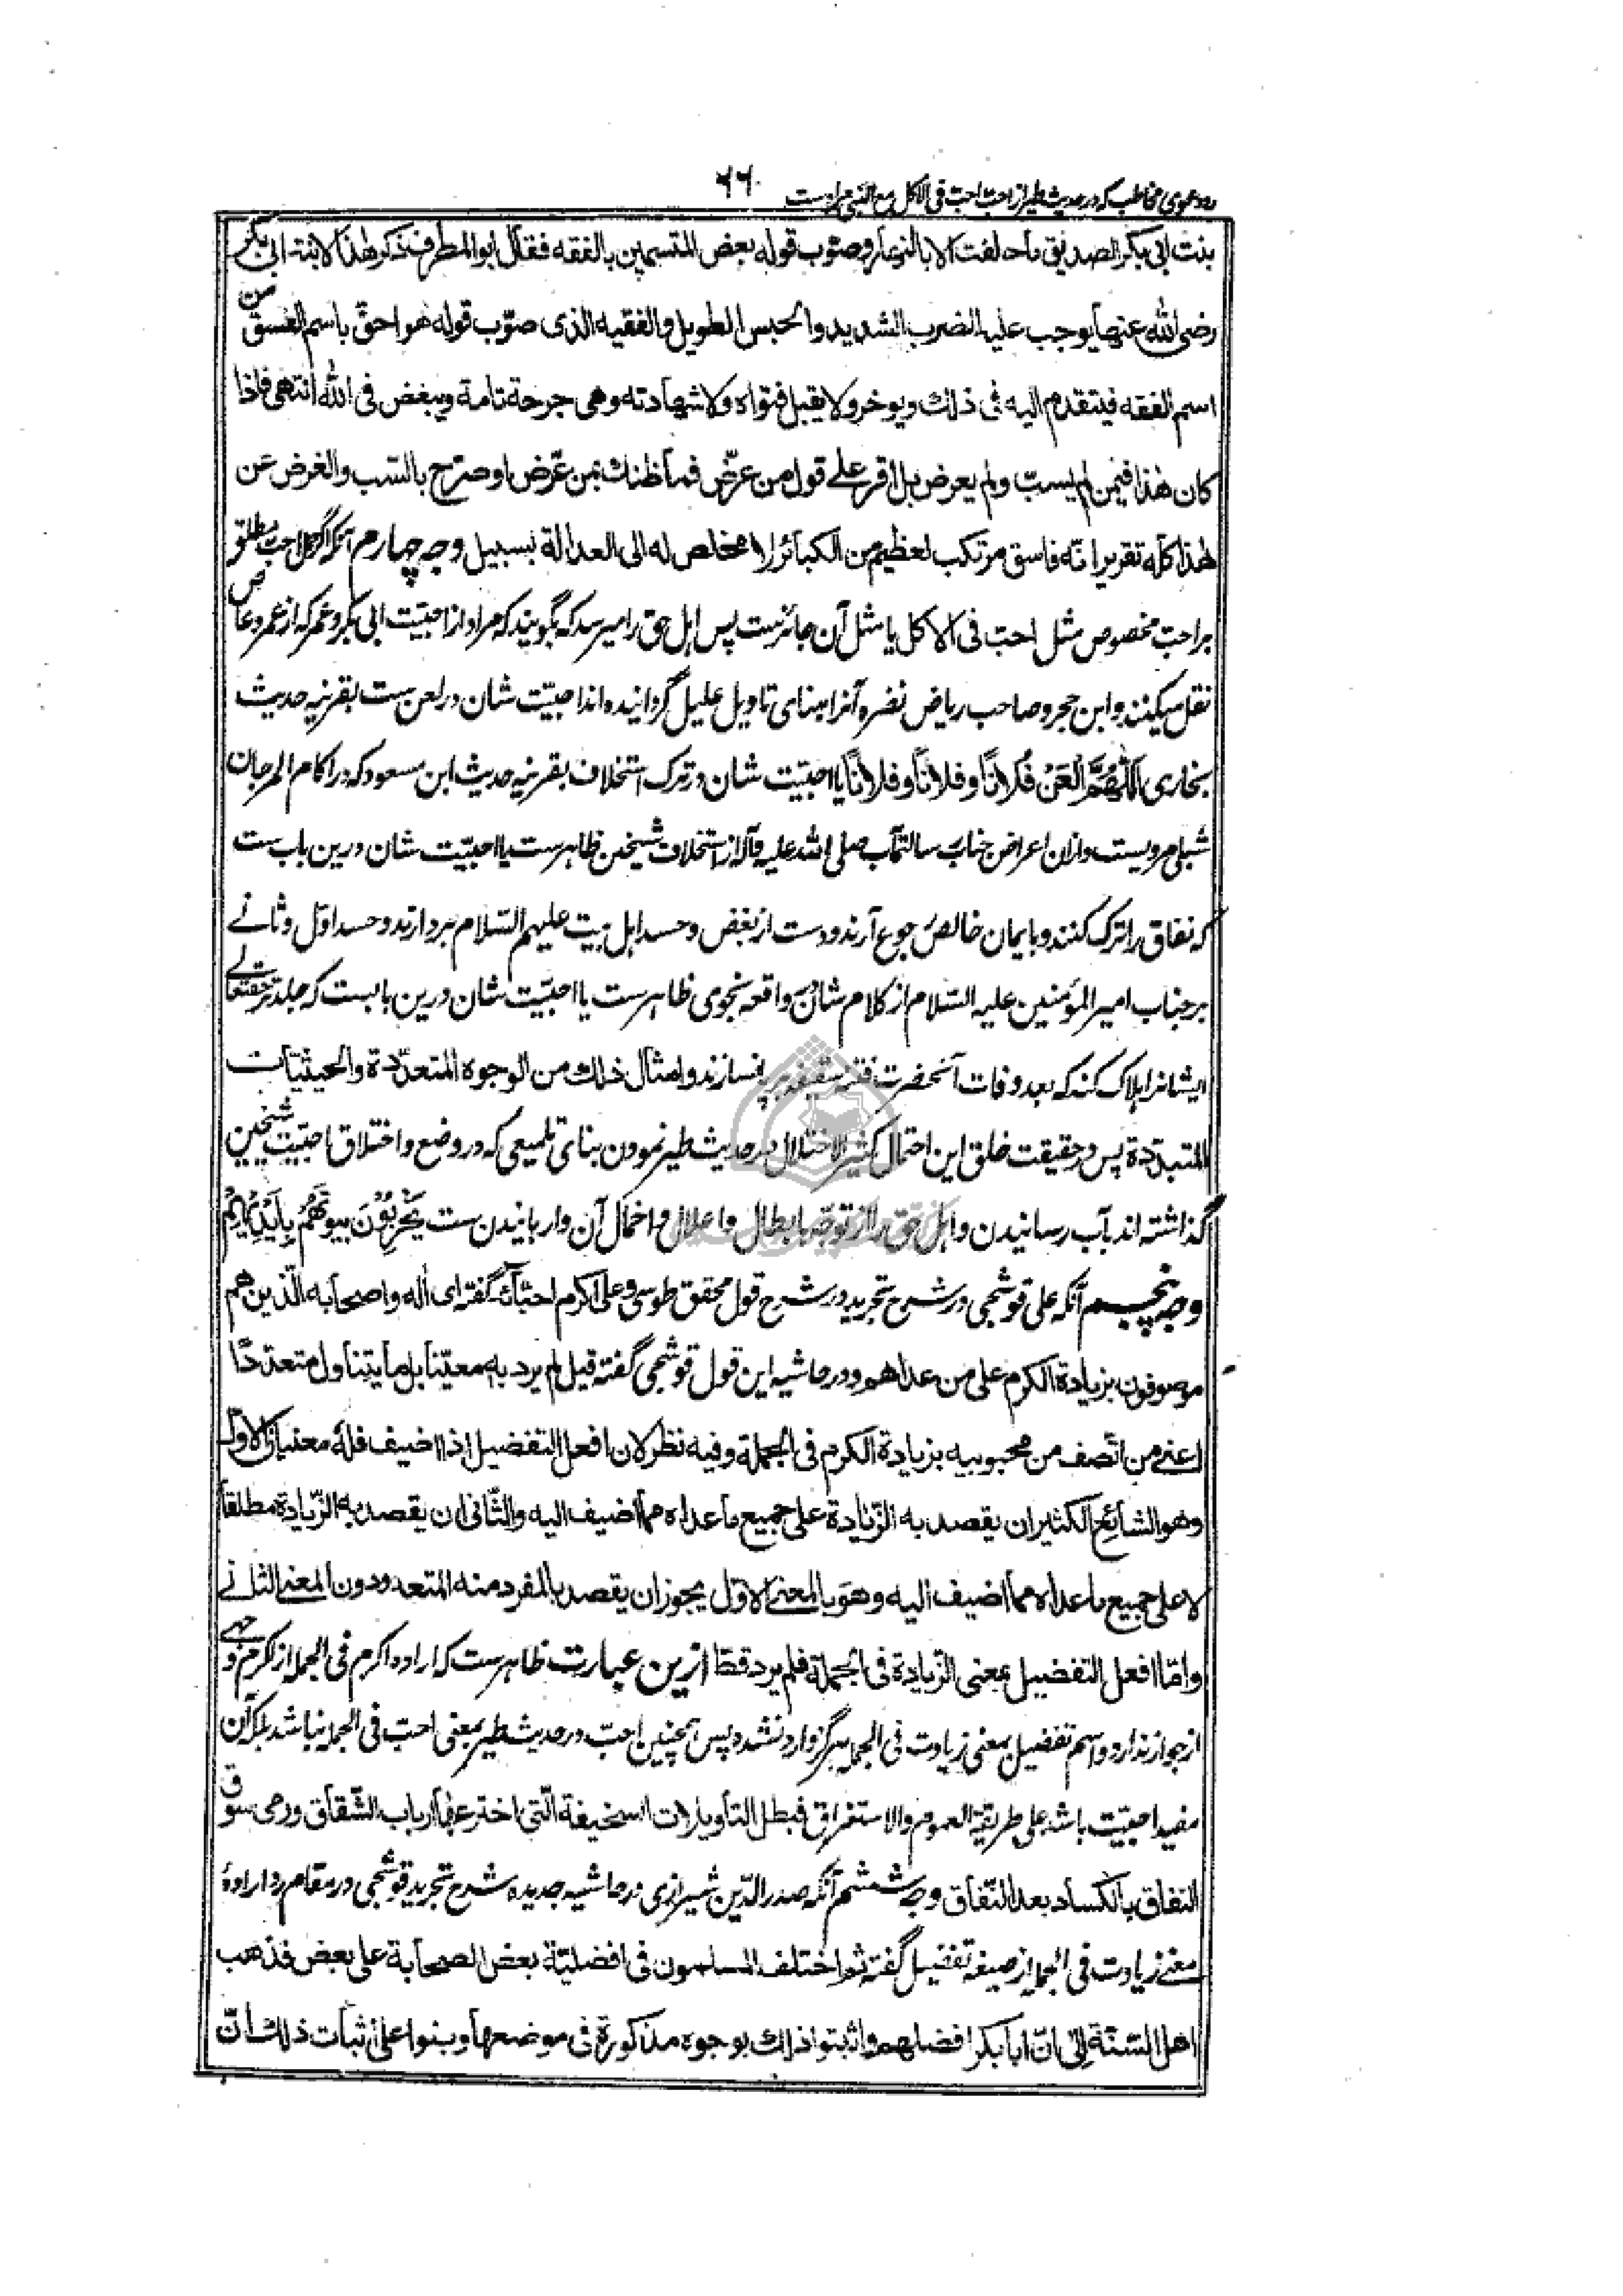 رد دعوی مخاطب که در حدیث طیر از احب احب فی الاکل مع النبی مراد است
۶۶۰
بنت ابی بکر الصدیق ما حلفت الا بالنهار و صوّب قوله بعض المتسمین بالفقه فقال ابو المطرف ذکر هذا لابنة ابی بکر
رضی الله عنها یوجب علیه الضرب الشدید و الحبس الطویل و الفقیه الذی صوّب قوله هو احق باسم الفسق من
اسم الفقه فیتقدم الیه فی ذلک و یوخر ولا یقبل فتواه ولا شهادته وهی جرحة تامة و یبغض فی الله انتهی فاذا
کان هذا فیمن لم یسبّ و لم یعرض بل اقر علی قول من عرّض فما ظنك بمن عرّض او صرّح بالسّب و الغرض عن
هذا کله تقریر انه فاسق مرتکب لعظیم من الکبائر لا مخلص له الی العدالة بسبیل وجه چهارم آنکه اگر حمل احب مطلق
بر احب مخصوص مثل احب فی الاکل یا مثل آن جائزست پس اهل حق را میرسد که بگویند که مراد از احبیّت ابی بکر و عمر که از عمرو عاص
نقل میکنند و ابن حجر و صاحب ریاض نضره آنرا مبنای تاویل علیل گردانیده اند احبیّت شان در لعن ست بقرینه حدیث
بخاری اللّٰهُمَّ الْعَنْ فُلَانًا وفلاناً وفلاناً یا احبیّت شان در ترک استخلاف بقرینه حدیث ابن مسعود که در اکام المرجان
شبلی مرویست و ازان اعراض جناب رسالتمآب صلی الله علیه و آله از استخلاف شیخین ظاهرست یا احبیّت شان درین باب ست
که نفاق را ترک کنند و بایمان خالص رجوع آرند و دست از بغض و حسد اهل بیت علیهم السّلام بردارند و حسد اوّل و ثانے
بر جناب امیر المؤمنین علیه السّلام از کلام شان در واقعه نجوی ظاهرست یا احبیّت شان درین بابست که جلدتر حقتعالے
ایشانرا هلاک کند که بعد وفات آنحضرت فتنه سقیفه برپا نسازند و امثال ذلك من الوجوه المتعدّدة و الحیثیّات
المتبدّدة پس در حقیقت خلق این احتمال کثیر الاختلال در حدیث طیر نمودن بنای تلمیعی که در وضع و اختلاق احبیّت شیخین
گذاشته اند بآب رسانیدن و اهل حق را از توجّه بابطال و اعلال و اخمال آن وارهانیدن ست یُخْرِبُوْنَ بُیُوتَهُمْ بِاَیْدِیْهِمْ
وجه پنجم آنکه علی قوشجی در شرح تجرید در شرح قول محقق طوسی و علی اکرم احبّائه گفته ای اٰله و اصحابه الّذین هم
موصوفون بزیادة الکرم علی من عداهم و در حاشیه این قول قوشجی گفته قیل لم یرد به معیّنا بل ما یتناول متعدّدًا
اعنے من اتّصف من محبوبیه بزیادة الکرم فی الجملة و فیه نظر لان افعل التفضیل اذا اضیف فله معنیان الاوّل
وهو الشائع الکثیر ان یقصد به الزّیادة علی جمیع ما عداه مما اضیف الیه والثّانی ان یقصد به الزّیادة مطلقاً
لا علی جمیع ما عداه مما اضیف الیه وهو بالمعنے الاوّل یجوز ان یقصد بالمفرد منه المتعدد دون المعنے الثّانے
وامّا افعل التفضیل بمعنی الزّیادة فی الجملة فلم یرد قطّ ازین عبارت ظاهرست که اراده اکرم فی الجمله از اکرم وجهے
از جواز ندارد و اسم تفضیل بمعنی زیادت فی الجمله هرگز وارد نشده پس همچنین احبّ در حدیث طیر بمعنی احبّ فی الجمله نباشد بلکه آن
مفید احبیّت باشد علی طریقة العموم والاستغراق فبطل التأویلات السخیفة الّتی اخترعها ارباب الشّقاق ورمی سوق
النفاق بالکساد بعد النّفاق وجه ششم آنکه صدر الدّین شیرازی در حاشیه جدیده شرح تجرید قوشجی در مقام رد ارادهٔ
معنے زیادت فی الجمله از صیغه تفضیل گفته ثم اختلف المسلمون فی افضلیّة بعض الصحابة علی بعض فذهب
اهل السّنّة الی انّ ابا بکر افضلهم و اثبتوا ذلك بوجوه مذکورة فی موضعها و بنوا علی اثبات ذلك انّ